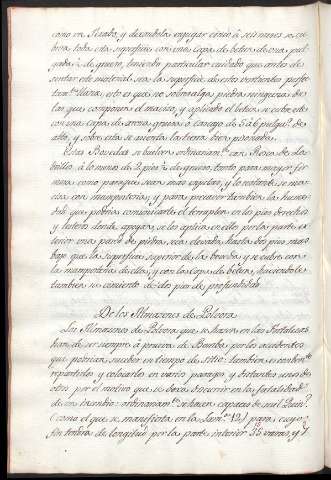 como en Terado, y dexandola enjugar cinco à seis meses se cu-
brira toda esta superficie con una Capa de betun de una pul-
gada ½ de grueso, teniendo particular cuidado que antes de
sentar este material sea la superficie de estas vertientes perfec-
tam.te llana, esto es que no sobresalga piedra ninguna de
las que componen el macizo, y aplicado el betun se cubre este
con una capa de arena gruesa ò cascajo de 5 à 6 pulg.s de
alto, y sobre esta se asienta la tierra bien pisonada.
Estas Bovedas se haran ordinariam.te con Rosca de La-
drillo, à lo menos de 2 pies ½ de grueso, tanto para mayor fir-
meza como para que sean mas y lo restante se ma-
ciza con mamposteria, y para precaver tambien la hume-
dad que podria comunicarle el terraplen en los pies derechos
y testero donde apoyan, se les aplica en ellos por la parte ex-
terior una pared de piedra seca elevada hasta dos pies mas
bajo que la superficie superior de la boveda y se cubre con
la mamposteria de ella, y con la Capa de betun, haciendole
tambien su cimiento de dos pies de profundidad.
De los Almazenes de Polvora
Los Almazenes de Polvora que se hacen en las Fortalezas
han de ser siempre à prueva de Bomba por los accidentes
que podrian suceder en tiempo de sitio: tambien es combin.te
repartirlos y colocarlos en varios parages, y distantes unos de
otros por el motivo que se deva discurrir en la fatalidad
de un incendio: ordinariam.te se hacen capaces de mil Quin.s
(como el que se manifiesta en la Lam.a 12.) para cuyo
fin tendra de longitud por la parte interior 35 varas, y 7